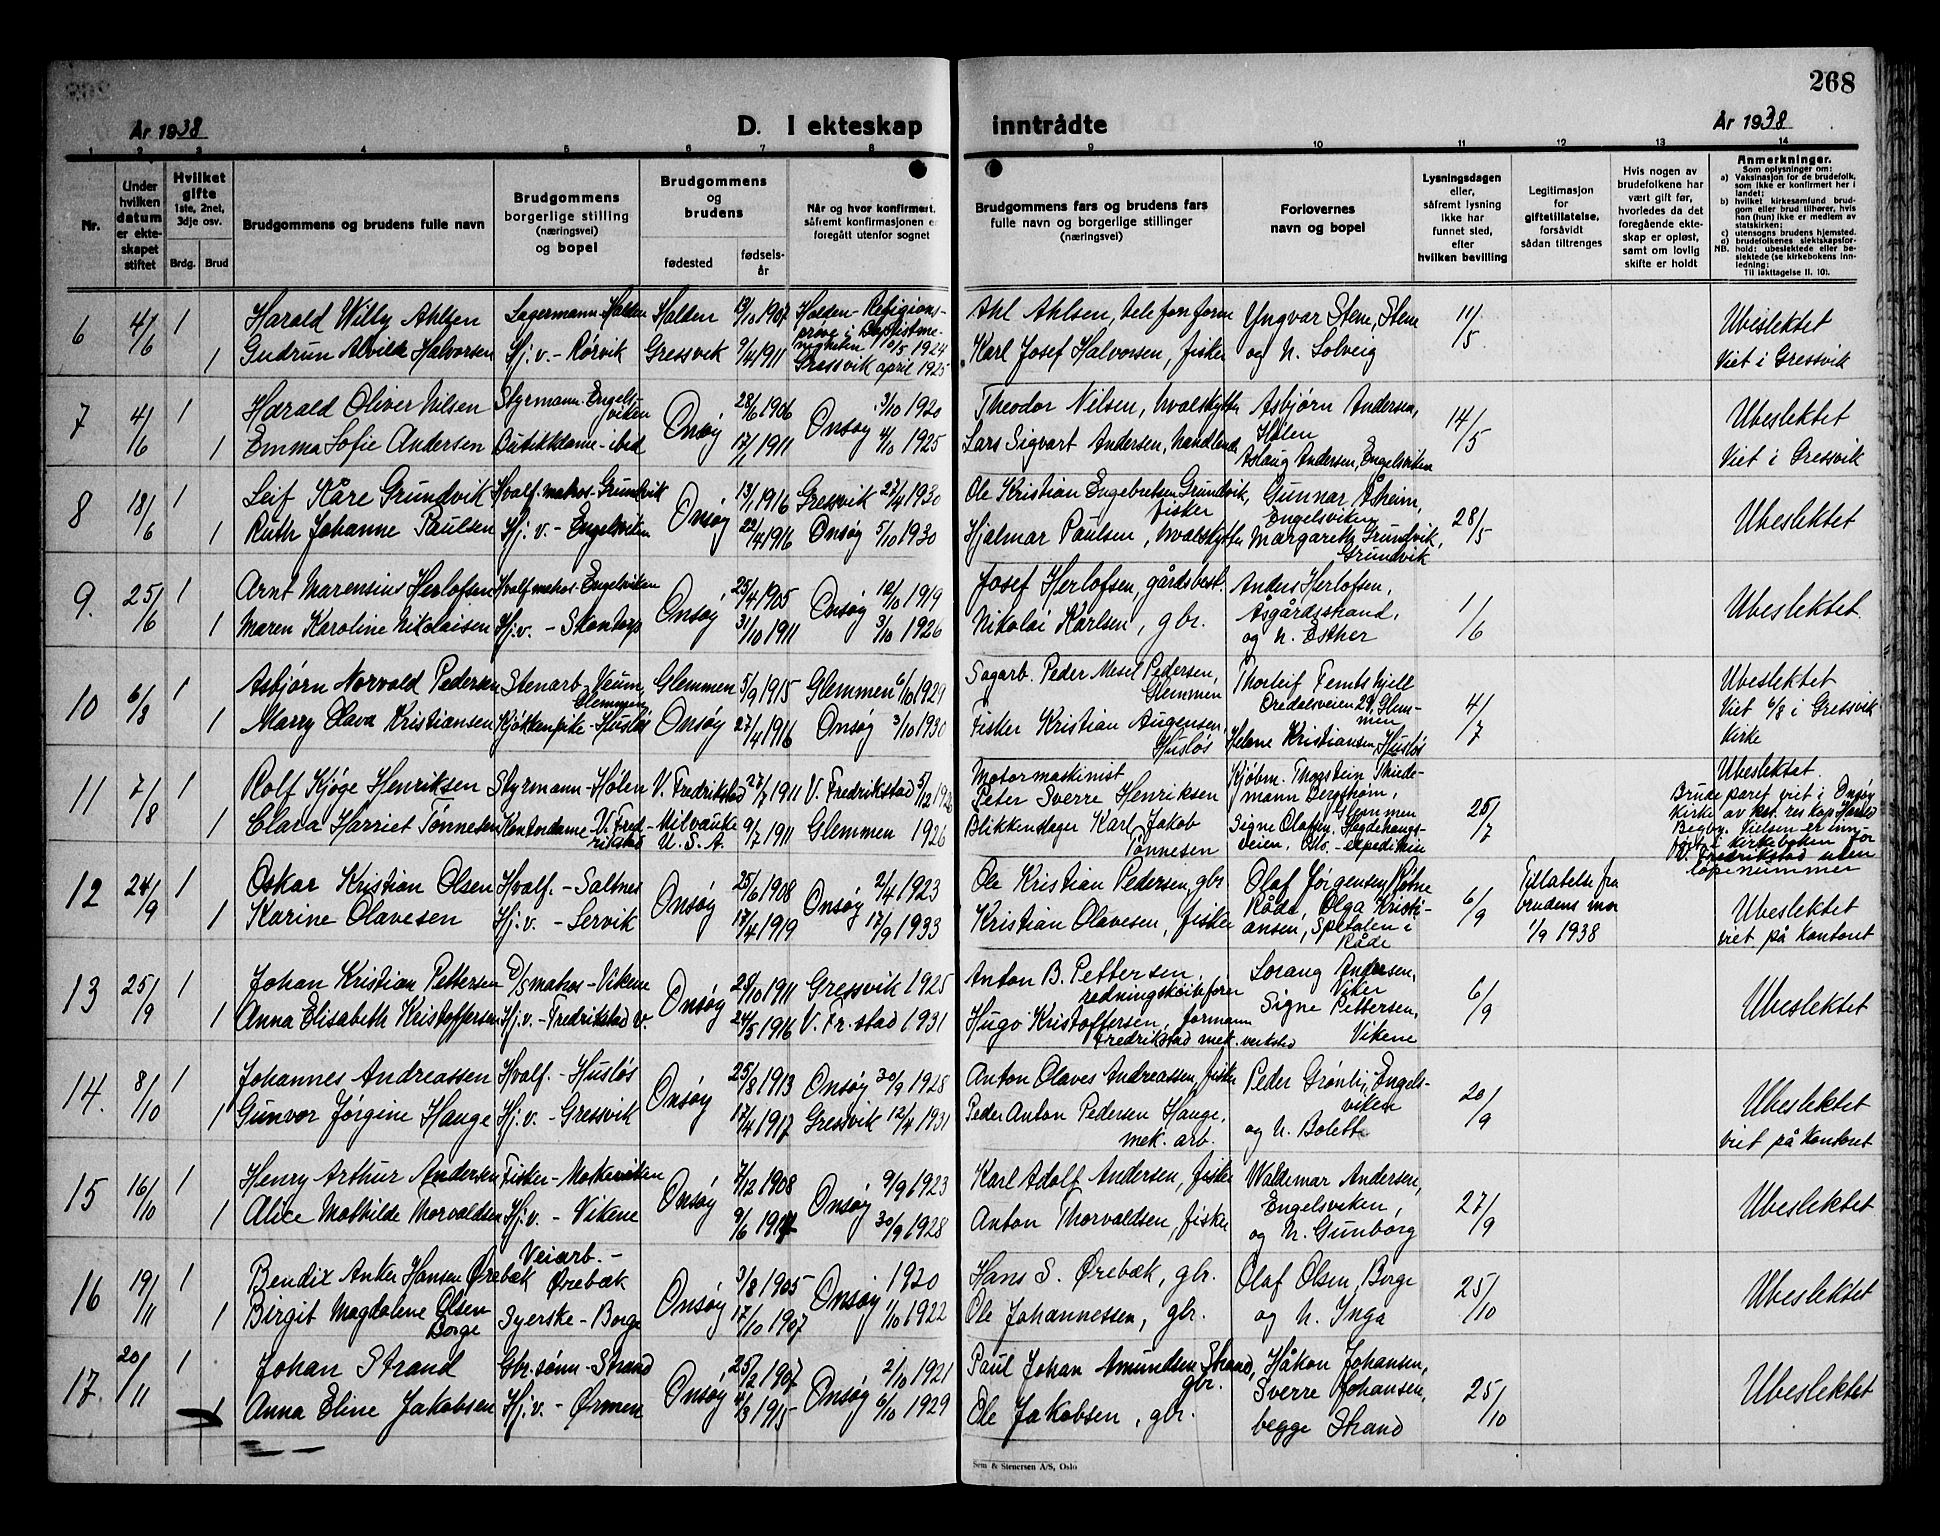 268
År 1938
D. I ekteskap inntrådte
År 1938
1 2 3 4 5 6 7 8 9 10 11 12 13 14
Nr.
Under hvilken datum er ekteskapet stiftet
Hvilket gifte 1ste, 2net, 3dje osv.
Brdg. Brud
Brudgommens og brudens fulle navn
Brudgommens borgerlige stilling (næringsvei) og bopel
Brudgommens og brudens
fødested
fødselsår
Når og hvor konfirmert, såfremt konfirmasjonen er foregått utenfor sognet
Brudgommens fars og brudens fars fulle navn og borgerlige stillinger (næringsvei)
Forlovernes navn og bopel
Lysningsdagen eller, såfremt lysning ikke har funnet sted, efter hvilken bevilling
Legitimasjon for giftetillatelse, forsåvidt sådan tiltrenges
Hvis nogen av brudefolkene har vært gift før, hvorledes da det foregående ekteskap er opløst, samt om lovlig skifte er holdt
Anmerkninger.
Som oplysninger om:
a) Vaksinasjon for de brudefolk, som ikke er konfirmert her i landet;
b) hvilket kirkesamfund brudgom eller brud tilhører, hvis han (hun) ikke er medlem av statskirken;
c) utensogns brudens hjemsted.
d) brudefolkenes slektskapsforhold: ubeslektede eller beslektede (se kirkebokens innledning:
NB.
Til iakttagelse II. 10).
6 4/6 1 Harald Willy Ahlsen Lagermann Halden Halden 13/10 1907 Halden Religionsprøve i Baptistmenigheten 10/5 1924 Ahl Ahlsen, telefonform Yngvar Stene, Stene 11/5 Ubeslektet
1 Gudrun Alvilde Halvorsen Hj.v. - Rørvik Gressvik 9/4 1911 Gressvik april 1925 Karl Josef Halvorsen, fisker og h. Solveig Viet i Gressvik
7 4/6 1 Harald Oliver Nilsen Styrmann-Engelsviken Onsøy 28/6 1906 Onsøy 3/10 1920 Theodor Nilsen, hvalskytter Asbjørn Andersen, Hølen 14/5 Ubeslektet
1 Emma Sofie Andersen Butikkdame - ibid 17/11 1911 4/10 1925 Lars Sigvart Andersen, handlende Aslaug Andersen, Engelsviken Viet i Gressvik
8 18/6 1 Leif Kåre Grundvik Hvalf. makos-Grundvik Onsøy 13/1 1916 Gressvik 27/4 1930 Ole Kristian Engebretsen Grundvik, fisker Gunnar Åsheim, Engelsviken 28/5 Ubeslektet
1 Ruth Johanne Paulsen Hj.v. - Engelsviken 22/4 1916 Onsøy 5/10 1930 Hjalmar Paulsen, hvalskytter Margareth Grundvik, Grundvik
9. 25/6 1 Arnt Marensius Herlofsen Hvalf makos-Engelsviken Onsøy 25/4 1905 Onsøy 12/10 1919 Josef Herlofsen, gårdsbest. Anders Herlofsen, Åsgårdsstrand, 1/6 Ubeslektet.
1 Maren Karoline Nikolaisen Hj.v. - Skontorp 31/10 1911 3/10 1926 Nikolai Karlsen, gbr. og h. Esther
10 6/8 1 Asbjørn Norvald Pedersen Stenarb. Veum, Glemmen Glemmen 5/9 1915 Glemmen 6/10 1929 Sagarb. Peder Pedersen, Glemmen Thorleif Oredalsveien 29, Glemmen 4/7 Ubeslektet
1 Marry Olava Kristiansen Kjøkkenpike - Husløs Onsøy 27/4 1916 Onsøy 3/10 1930 Fisker Kristian Augensen, Husløs Helene Kristiansen, Husløs Viet 6/8 i Gressvik Kirke
11 7/8 1 Rolf Kjøge Henriksen Styrmann - Hølen V. Fredrikstad 27/7 1911 V. Fredrikstad 5/12 1926 Motormaskinist Peter Sverre Henriksen Kjøbm. Thorstein Thiedemann Bergstrøm, Glemmen 25/7 Ubeslektet.
1 Clara Harriet Tønnesen Kontordame V. Fredrikstad Milvauke U.S.A. 9/7 1911 Glemmen 1926 Blikkenslager Karl Jakob Tønnesen Signe Olafsen, Oslo, - expeditrise Brudeparet viet i Onsøy Kirke av res kap Harald Begby. Vielsen er innført i kirkeboken for V. Fredrikstad uten løpenummer
12 24/9 1 Oskar Kristian Olsen Hvalf. - Saltnes Onsøy 25/6 1908 Onsøy 2/4 1923 Ole Kristian Pedersen, gbr Olaf Jørgensen, Råde, 6/9 Tillatelse fra brudens mor 1/9 1938 Ubeslektet
1 Karine Olavesen Hj.v. - Lervik 17/4 1919 17/9 1933 Kristian Olavesen, fisker Olga Kristiansen, Spetalen i Råde viet på Kontoret
13 25/9 1 Johan Kristian Pettersen D/S makos - Vikene Onsøy 28/10 1911 Gressvik 1925 Anton B. Pettersen, redningskøitefører Lorang Andersen, Viker 6/9 Ubeslektet
1 Anna Elisabeth Kristoffersen Hj.v. - Fredrikstad v. 24/5 1916 V. Fr.stad 1931 Hugo Kristoffersen, formann Fredrikstad mek. verksted Signe Pettersen, Vikene
14. 8/10 1 Johannes Andreassen Hvalf. - Husløs Onsøy 25/8 1913 Onsøy 30/9 1928 Anton Olaves Andreassen, fisker Peder Grønli, Engelsviken 20/9 Ubeslektet
1 Gunvor Jørgine Hauge Hj.v. - Gressvik 17/4 1917 Gressvik 12/4 1931 Peder Anton Pedersen Hauge, mek. arb. og h. Bolette viet på Kontoret
15 16/10 1 Henry Arthur Andersen Fisker - Moskeviken Onsøy 7/12 1908 Onsøy 9/9 1923 Karl Adolf Andersen, fisker Waldemar Andersen, Engelsviken, 27/9 Ubeslektet
1 Alice Mathilde Thorvaldsen Hj.v. - Vikene 9/6 30/9 1928 Anton Thorvaldsen, fisker og h. Gunborg
16 19/11 1 Bendix Anker Hansen Ørebæk Veiarb. - Ørebæk Onsøy 3/8 1905 Onsøy 1920 Hans S. Ørebæk, gbr. Olaf Olsen, Borge 25/10 Ubeslektet
1 Birgit Magdalene Olsen Borge Syerske - Borge 17/10 1907 1/10 1922 Ole Johannessen, gbr. og h. Inga
17. 20/11 1 Johan Strand Gbr.sønn - Strand Onsøy 25/2 1907 Onsøy 2/10 1921 Paul Johan Amundsen Strand, gbr. Håkon Johansen, 25/10 Ubeslektet
1 Anna Eline Jakobsen Hj.v. - Ørmen 1915 6/10 1929 Ole Jakobsen, gbr. Sverre Johansen, begge Strand
Sem & Stenersen A/S, Oslo